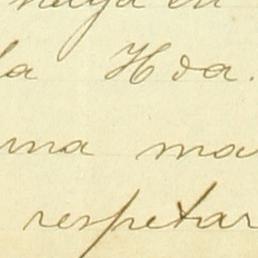 haya en
la Hda.
una ma
respetar